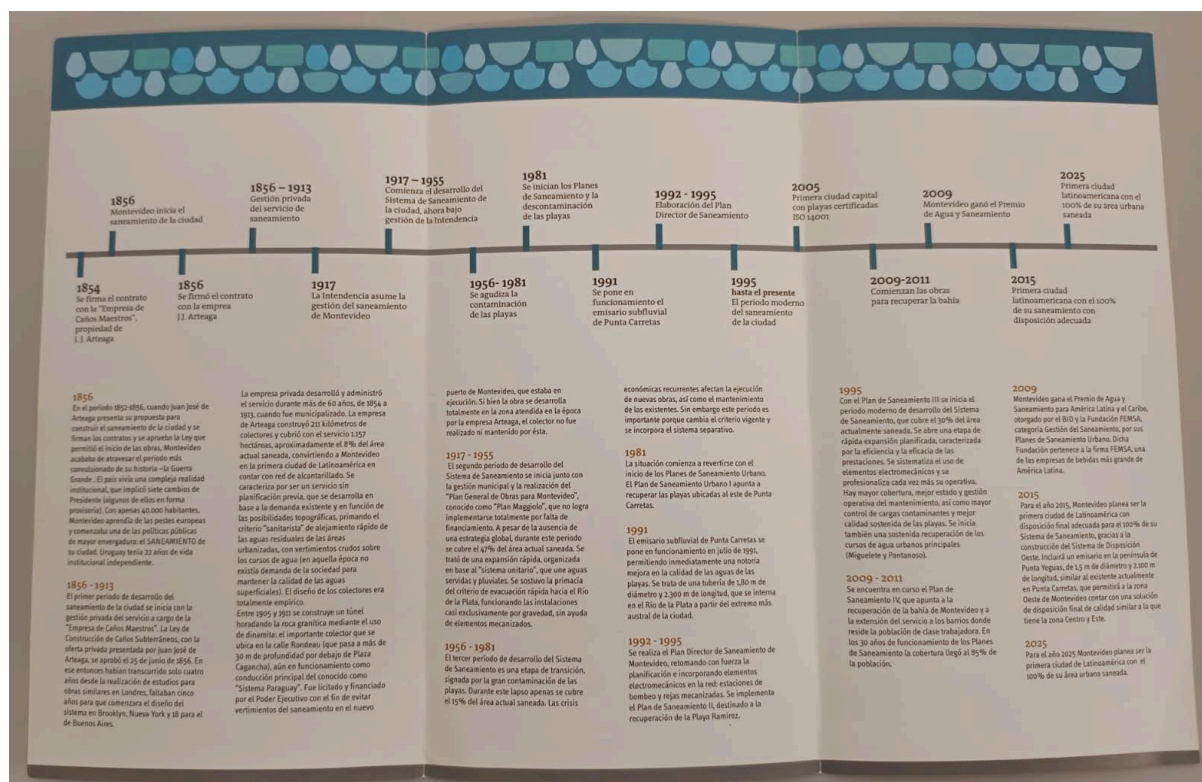 1856
Montevideo inicia el
saneamiento de la ciudad
1856 – 1913
Gestión privada
del servicio de
saneamiento
1917 – 1955
Comienza el desarrollo del
Sistema de Saneamiento de
la ciudad, ahora bajo
gestión de la Intendencia
1981
Se inician los Planes
de Saneamiento y la
descontaminación
de las playas
1992 - 1995
Elaboración del Plan
Director de Saneamiento
2005
Primera ciudad capital
con playas certificadas
ISO 14001
2009
Montevideo ganó el Premio
de Agua y Saneamiento
2025
Primera ciudad
latinoamericana con el
100% de su área urbana
saneada
1854
Se firma el contrato
con la "Empresa de
Caños Maestros",
propiedad de
J.J. Arteaga
1856
Se firmó el contrato
con la emprea
J.J. Arteaga
1917
La Intendencia asume la
gestión del saneamiento
de Montevideo
1956- 1981
Se agudiza la
contaminación
de las playas
1991
Se pone en
funcionamiento el
emisario subfluvial
de Punta Carretas
1995
hasta el presente
El periodo moderno
del saneamiento
de la ciudad
2009-2011
Comienzan las obras
para recuperar la bahía
2015
Primera ciudad
latinoamericana con el 100%
de su saneamiento con
disposición adecuada
1856
En el período 1852-1856, cuando Juan José de
Arteaga presenta su propuesta para
construir el saneamiento de la ciudad y se
firman los contratos y se aprueba la Ley que
permitió el inicio de las obras, Montevideo
acababa de atravesar el período más
convulsionado de su historia –la Guerra
Grande-. El país vivía una compleja realidad
institucional, que implicó siete cambios de
Presidente (algunos de ellos en forma
provisoria). Con apenas 40.000 habitantes,
Montevideo aprendía de las pestes europeas
y comenzaba una de las políticas públicas
de mayor envergadura: el SANEAMIENTO de
su ciudad. Uruguay tenía 22 años de vida
institucional independiente.
1856 - 1913
El primer período de desarrollo del
saneamiento de la ciudad se inicia con la
gestión privada del servicio a cargo de la
"Empresa de Caños Maestros". La Ley de
Construcción de Caños Subterráneos, con la
oferta privada presentada por Juan José de
Arteaga, se aprobó el 25 de junio de 1856. En
ese entonces habían transcurrido solo cuatro
años desde la realización de estudios para
obras similares en Londres, faltaban cinco
años para que comenzara el diseño del
sistema en Brooklyn, Nueva York y 18 para el
de Buenos Aires.
La empresa privada desarrolló y administró
el servicio durante más de 60 años, de 1854 a
1913, cuando fue municipalizado. La empresa
de Arteaga construyó 211 kilómetros de
colectores y cubrió con el servicio 1.257
hectáreas, aproximadamente el 8% del área
actual saneada, convirtiendo a Montevideo
en la primera ciudad de Latinoamérica en
contar con red de alcantarillado. Se
caracteriza por ser un servicio sin
planificación previa, que se desarrolla en
base a la demanda existente y en función de
las posibilidades topográficas, primando el
criterio "sanitarista" de alejamiento rápido de
las aguas residuales de las áreas
urbanizadas, con vertimientos crudos sobre
los cursos de agua (en aquella época no
existía demanda de la sociedad para
mantener la calidad de las aguas
superficiales). El diseño de los colectores era
totalmente empírico.
Entre 1905 y 1912 se construye un túnel
horadando la roca granítica mediante el uso
de dinamita: el importante colector que se
ubica en la calle Rondeau (que pasa a más de
30 m de profundidad por debajo de Plaza
Cagancha), aún en funcionamiento como
conducción principal del conocido como
"Sistema Paraguay". Fue licitado y financiado
por el Poder Ejecutivo con el fin de evitar
vertimientos del saneamiento en el nuevo
puerto de Montevideo, que estaba en
ejecución. Si bien la obra se desarrolla
totalmente en la zona atendida en la época
por la empresa Arteaga, el colector no fue
realizado ni mantenido por ésta.
1917 - 1955
El segundo período de desarrollo del
Sistema de Saneamiento se inicia junto con
la gestión municipal y la realización del
"Plan General de Obras para Montevideo",
conocido como "Plan Maggiolo", que no logra
implementarse totalmente por falta de
financiamiento. A pesar de la ausencia de
una estrategia global, durante este período
se cubre el 47% del área actual saneada. Se
trató de una expansión rápida, organizada
en base al "sistema unitario", que une aguas
servidas y pluviales. Se sostuvo la primacía
del criterio de evacuación rápida hacia el Río
de la Plata, funcionando las instalaciones
casi exclusivamente por gravedad, sin ayuda
de elementos mecanizados.
1956 - 1981
El tercer período de desarrollo del Sistema
de Saneamiento es una etapa de transición,
signada por la gran contaminación de las
playas. Durante este lapso apenas se cubre
el 15% del área actual saneada. Las crisis
económicas recurrentes afectan la ejecución
de nuevas obras, así como el mantenimiento
de las existentes. Sin embargo este período es
importante porque cambia el criterio vigente y
se incorpora el sistema separativo.
1981
La situación comienza a revertirse con el
inicio de los Planes de Saneamiento Urbano.
El Plan de Saneamiento Urbano I apunta a
recuperar las playas ubicadas al este de Punta
Carretas.
1991
El emisario subfluvial de Punta Carretas se
pone en funcionamiento en julio de 1991,
permitiendo inmediatamente una notoria
mejora en la calidad de las aguas de las
playas. Se trata de una tubería de 1,80 m de
diámetro y 2.300 m de longitud, que se interna
en el Río de la Plata a partir del extremo más
austral de la ciudad.
1992 - 1995
Se realiza el Plan Director de Saneamiento de
Montevideo, retomando con fuerza la
planificación e incorporando elementos
electromecánicos en la red: estaciones de
bombeo y rejas mecanizadas. Se implementa
el Plan de Saneamiento II, destinado a la
recuperación de la Playa Ramírez.
1995
Con el Plan de Saneamiento III se inicia el
período moderno de desarrollo del Sistema
de Saneamiento, que cubre el 30% del área
actualmente saneada. Se abre una etapa de
rápida expansión planificada, caracterizada
por la eficiencia y la eficacia de las
prestaciones. Se sistematiza el uso de
elementos electromecánicos y se
profesionaliza cada vez más su operativa.
Hay mayor cobertura, mejor estado y gestión
operativa del mantenimiento, así como mayor
control de cargas contaminantes y mejor
calidad sostenida de las playas. Se inicia
también una sostenida recuperación de los
cursos de agua urbanos principales
(Miguelete y Pantanoso).
2009 - 2011
Se encuentra en curso el Plan de
Saneamiento IV, que apunta a la
recuperación de la bahía de Montevideo y a
la extensión del servicio a los barrios donde
reside la población de clase trabajadora. En
los 30 años de funcionamiento de los Planes
de Saneamiento la cobertura llegó al 85% de
la población.
2009
Montevideo gana el Premio de Agua y
Saneamiento para América Latina y el Caribe,
otorgado por el BID y la Fundación FEMSA,
categoría Gestión del Saneamiento, por sus
Planes de Saneamiento Urbano. Dicha
Fundación pertenece a la firma FEMSA, una
de las empresas de bebidas más grande de
América Latina.
2015
Para el año 2015, Montevideo planea ser la
primera ciudad de Latinoamérica con
disposición final adecuada para el 100% de su
Sistema de Saneamiento, gracias a la
construcción del Sistema de Disposición
Oeste. Incluirá un emisario en la península de
Punta Yeguas, de 1,5 m de diámetro y 2.100 m
de longitud, similar al existente actualmente
en Punta Carretas, que permitirá a la zona
Oeste de Montevideo contar con una solución
de disposición final de calidad similar a la que
tiene la zona Centro y Este.
2025
Para el año 2025 Montevideo planea ser la
primera ciudad de Latinoamérica con el
100% de su área urbana saneada.